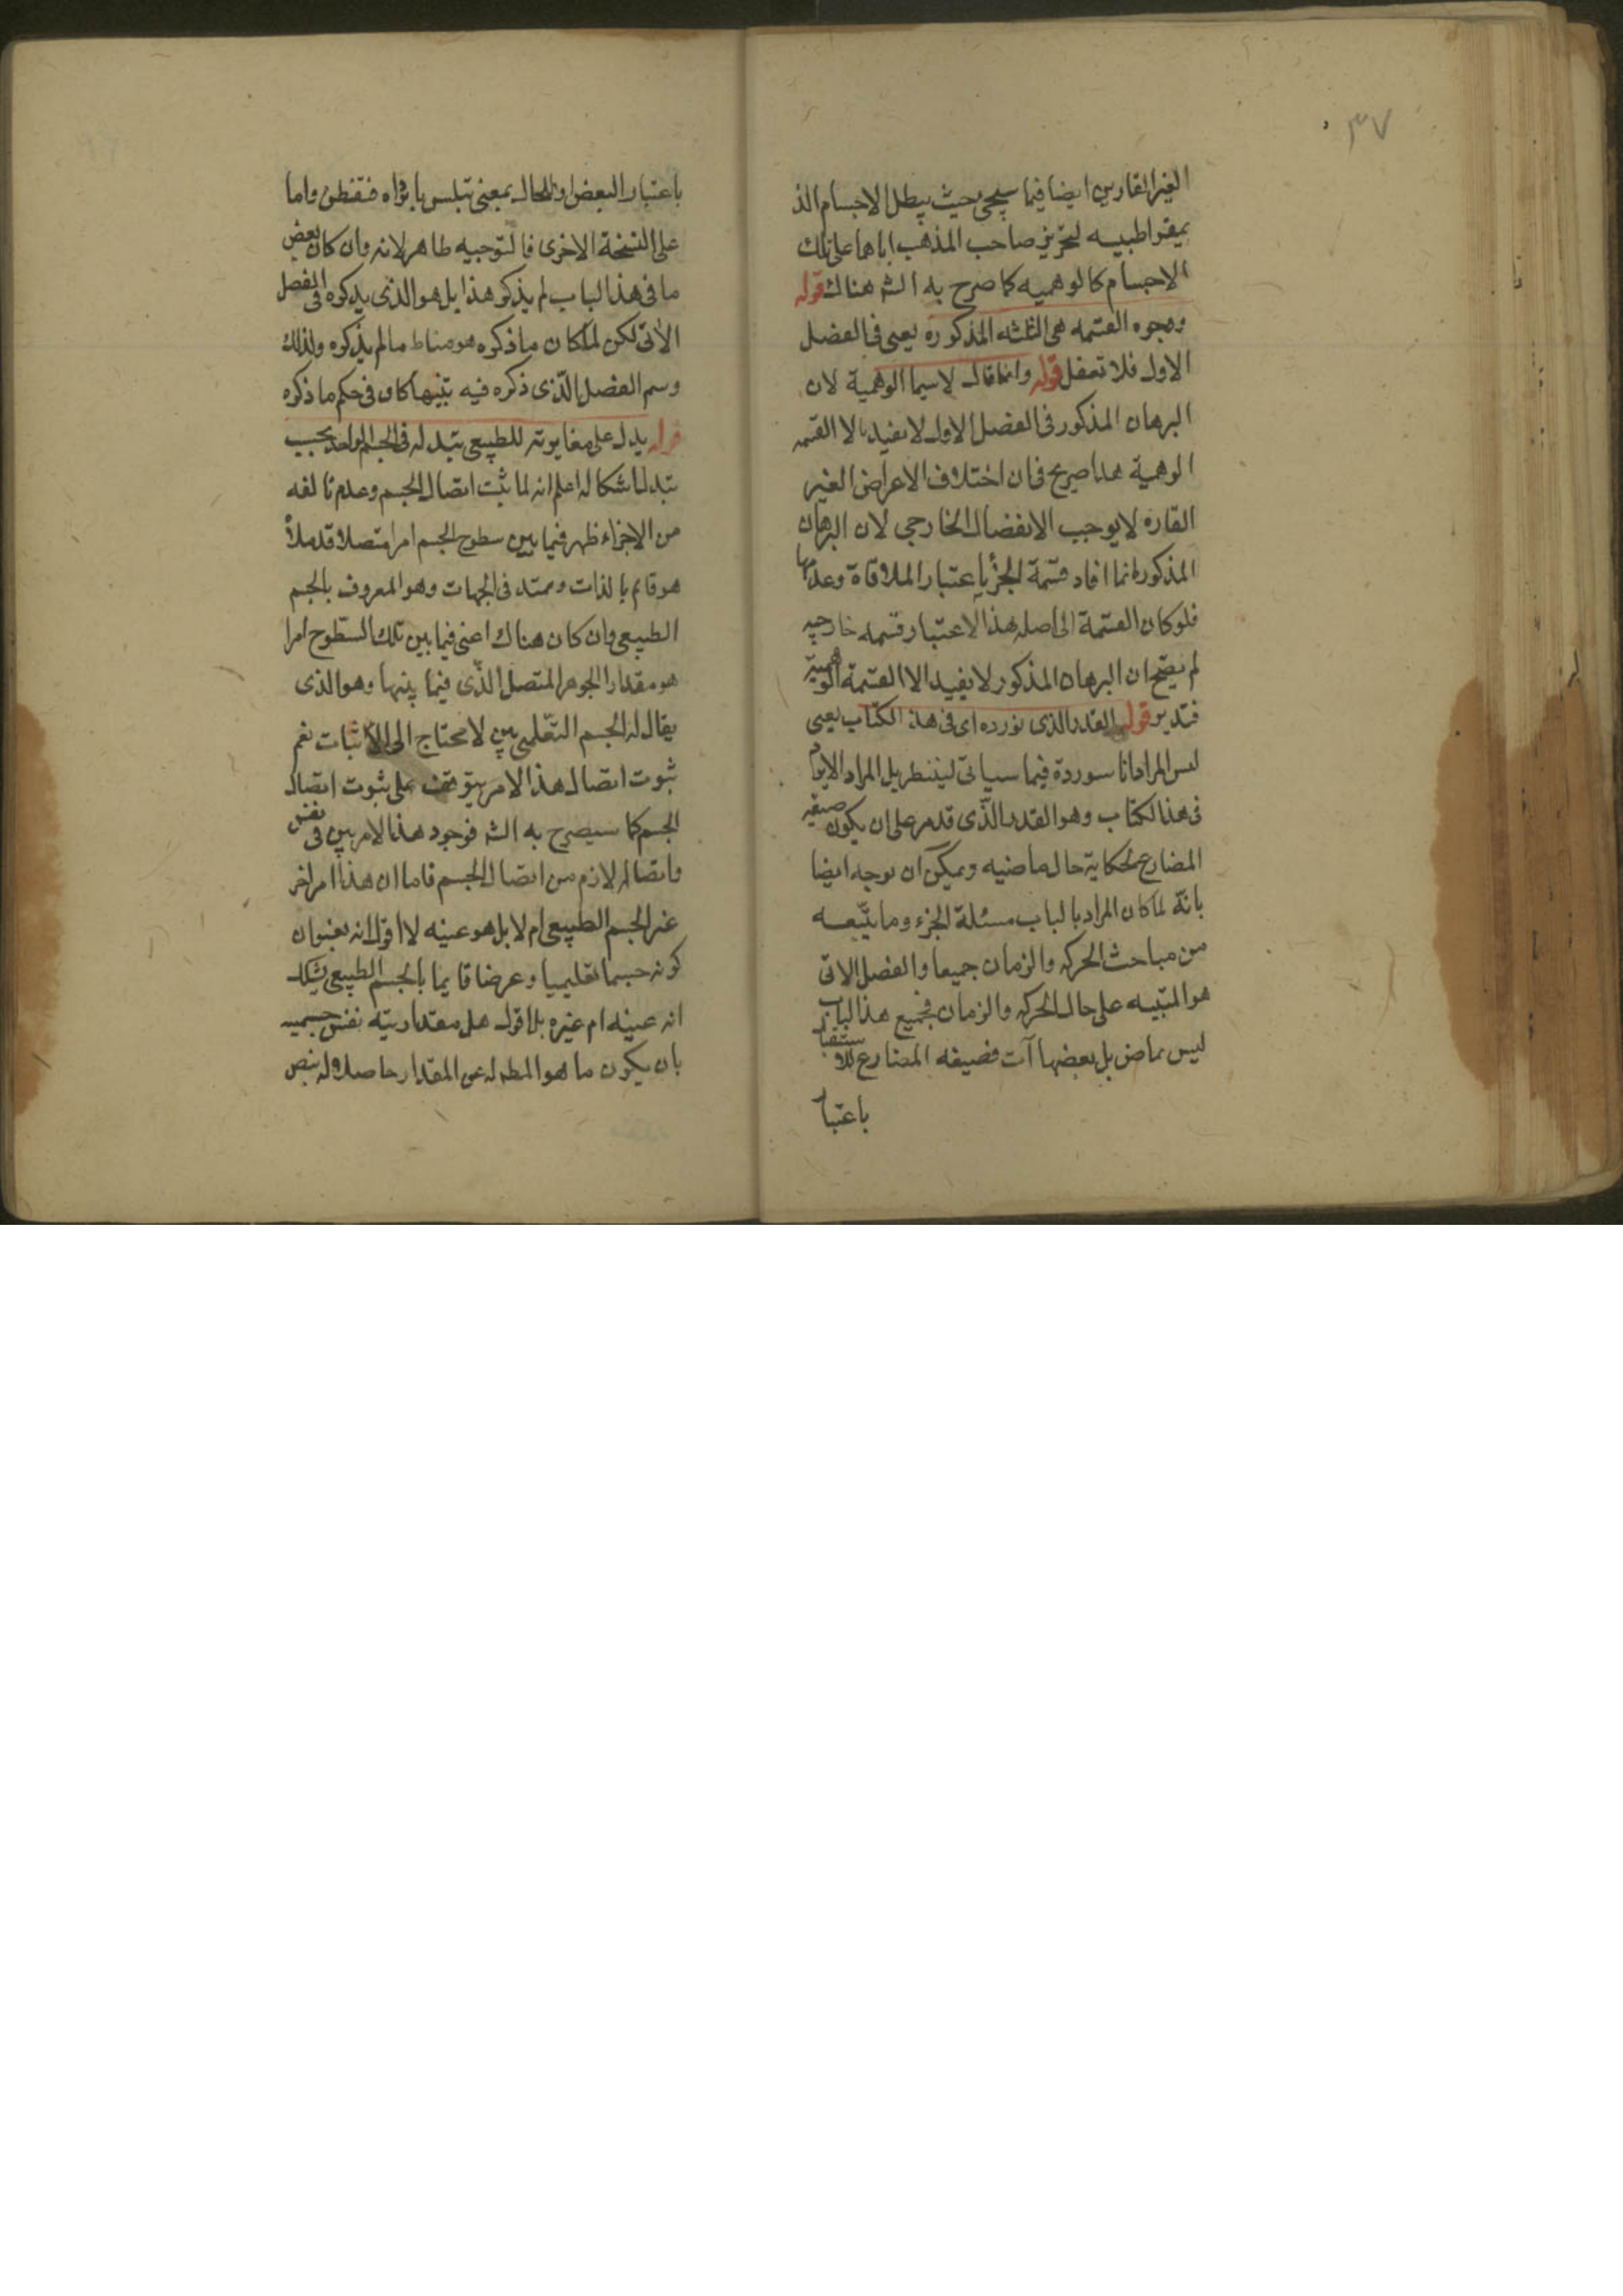 ٣٧
الغير القارين ايضا فيما سيجئ بحيث يبطل الاجسام الذ
يمقراطيسيه لتجويز صاحب المذهب اياها على تلك
الاجسام كالوهميه كما صرح به الشه هناك قوله
وجوه القسمه هى الثلثه المذكوره يعنى فى الفصل
الاول فلا تغفل قوله وانما قال لاسيما الوهمية لان
البرهان المذكور فى الفصل الاول لا يفيد الا القسمه
الوهمية هذا صريح فى ان اختلاف الاعراض الغير
القاره لا يوجب الانفصال الخارجى لان البرهان
المذكور انما افاد قسمة الجزء باعتبار الملاقاة وعدمها
فلو كان القسمة الحاصله بهذا الاعتبار قسمه خارجيه
لم يصح ان البرهان المذكور لا يفيد الا القسمة الوهمية
فتدبر قوله القدر الذى نورده اى فى هذا الكتاب يعنى
ليس المراد انا سنورده فيما سياتى لينتظر بل المراد الايراد
فى هذا الكتاب وهو القدر الذى قد مر على ان يكون صيغه
المضارع لحكاية حال ماضيه ويمكن ان يوجه ايضا
بانه لما كان المراد بالباب مسئلة الجزء وما يتبعه
من مباحث الحركه والزمان جميعا والفصل الاتى
هو التنبيه على حال الحركه والزمان فجميع هذا الباب
ليس بماض بل بعضها آت فصيغه المضارع للاستقبال
باعتبا
باعتبار البعض او للحال بمعنى نتلبس بايراده فتفطن واما
على النسخة الاخرى فالتوجيه ظاهر لانه وان كان بعض
ما فى هذا الباب لم يذكر هذا بل هو الذى يذكره فى الفصل
الاتى لكن لما كان ما ذكره هو مناط ما لم يذكره ولذلك
وسم الفصل الذى ذكره فيه تنبيها كان فى حكم ما ذكره
قوله يدل على مغايرته للطبيعى تبدله فى الجسم الواحد بحسب
تبدل اشكاله اعلم انه لما ثبت اتصال الجسم وعدم تالفه
من الاجزاء ظهر فيما بين سطوح الجسم امرا متصلا قد ملأ
هو قايم بالذات وممتد فى الجهات وهو المعروف بالجسم
الطبيعى وان كان هناك اعنى فيما بين تلك السطوح امرا
هو مقدار الجوهر المتصل الذى فيما بينها وهو الذى
يقال له الجسم التعليمى بين لا يحتاج الى الاثبات نعم
ثبوت اتصال هذا الامر يتوقف على ثبوت اتصال
الجسم كما سيصرح به الشه فوجود هذا الامر بين فى نفس
واتصاله لازم من اتصال الجسم فاما ان هذا امر اخر
غير الجسم الطبيعى ام لا بل هو عينه لا اقول انه بعنوان
كونه جسما تعليميا وعرضا قايما بالجسم الطبيعى يشكك
انه عينه ام غيره بل اقول هل مقداريته نفس جسميه
بان يكون ما هو المط له عن المقدار حاصلا له بنفس